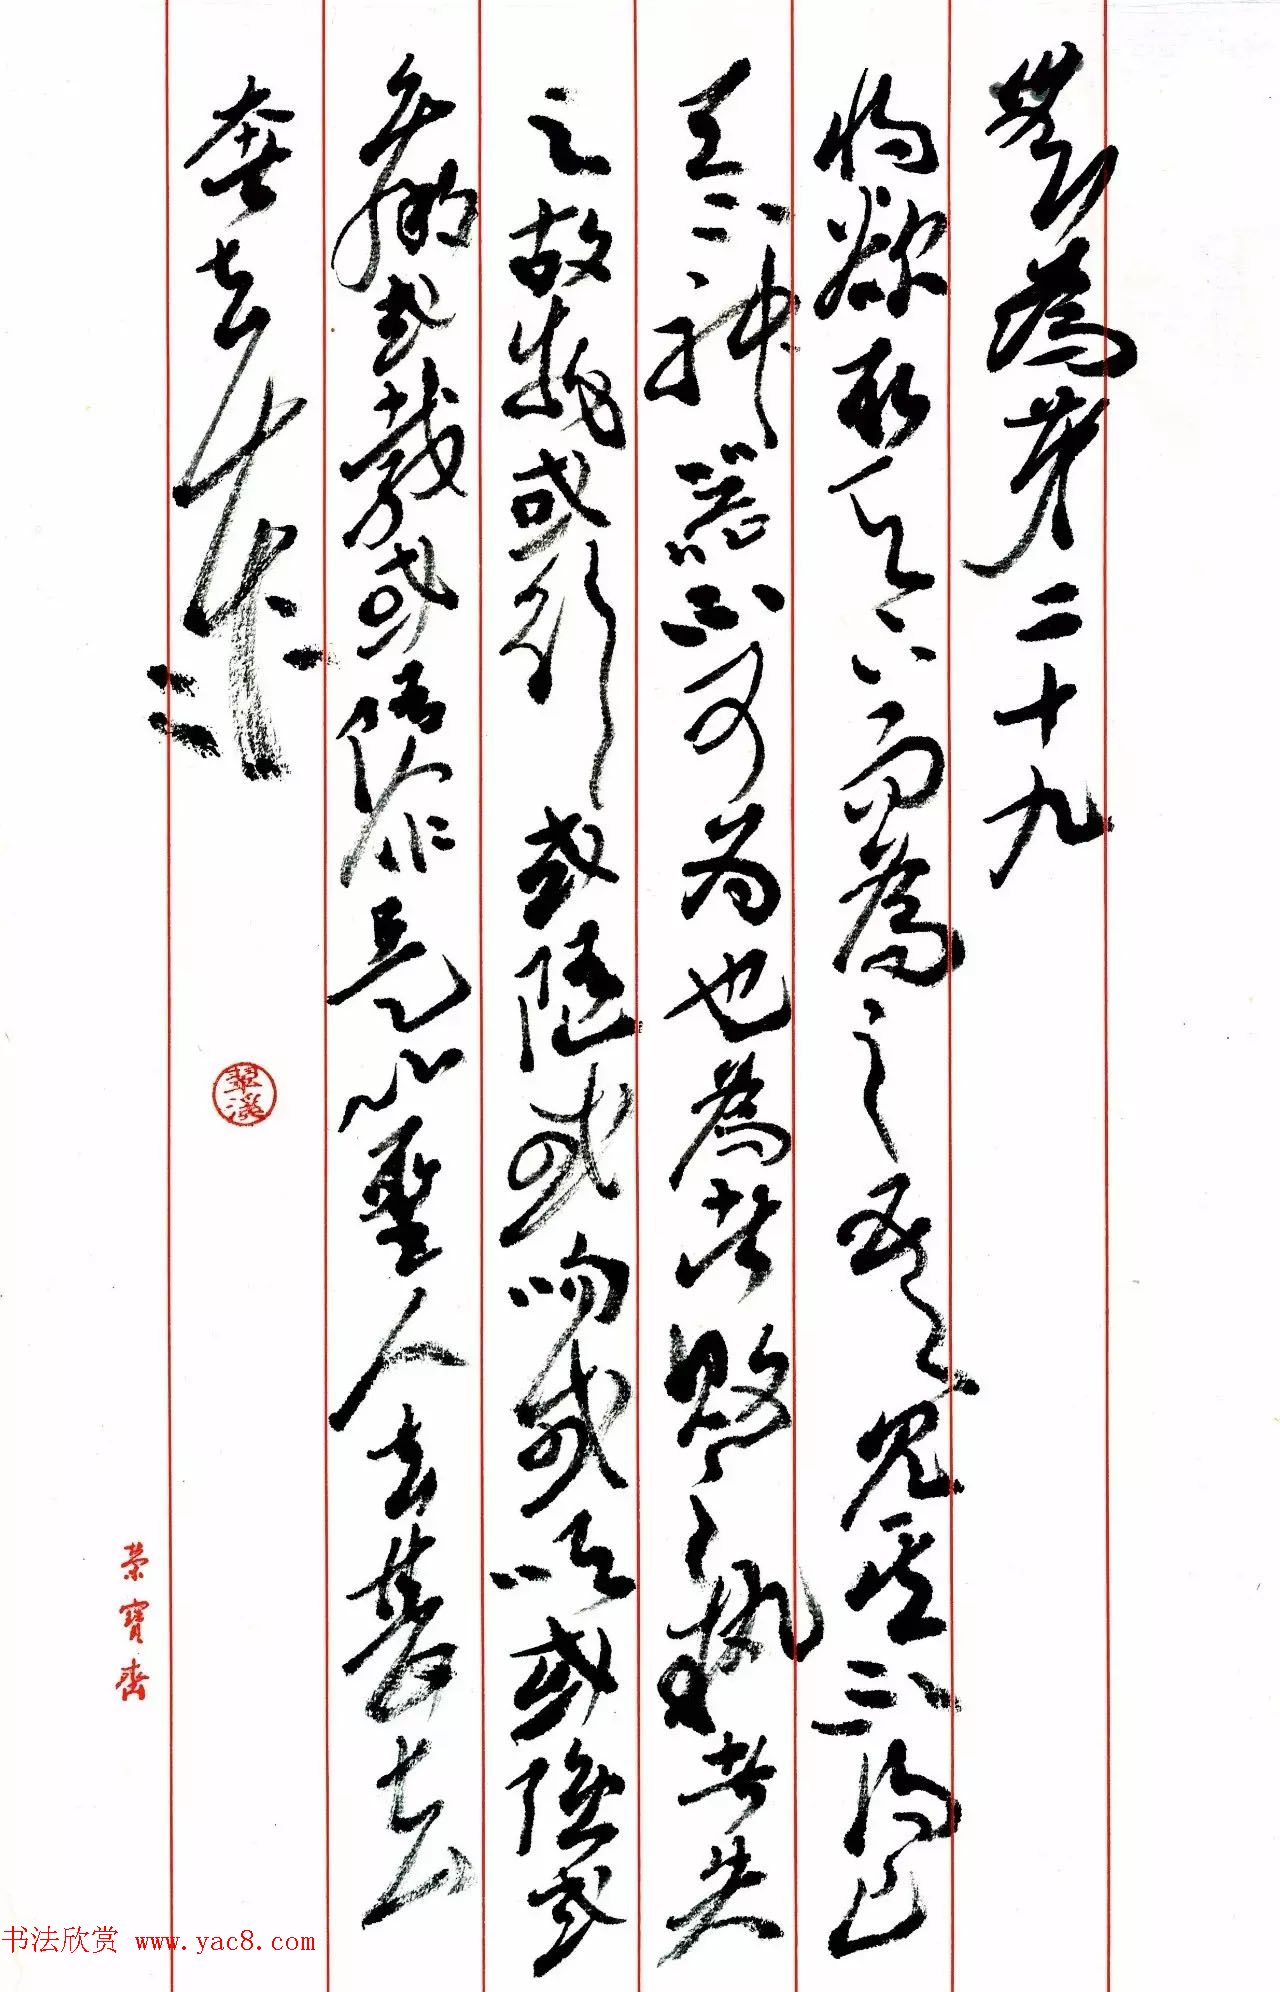 無為第二十九
將欲取天下而為之吾見其不得已
天下神器不可為也為者敗之執者失
之故物或行或隨或呴或吹或強或
羸或載或隳是以聖人去甚去
奢去泰
榮寶齋
书法欣赏 www.yac8.com